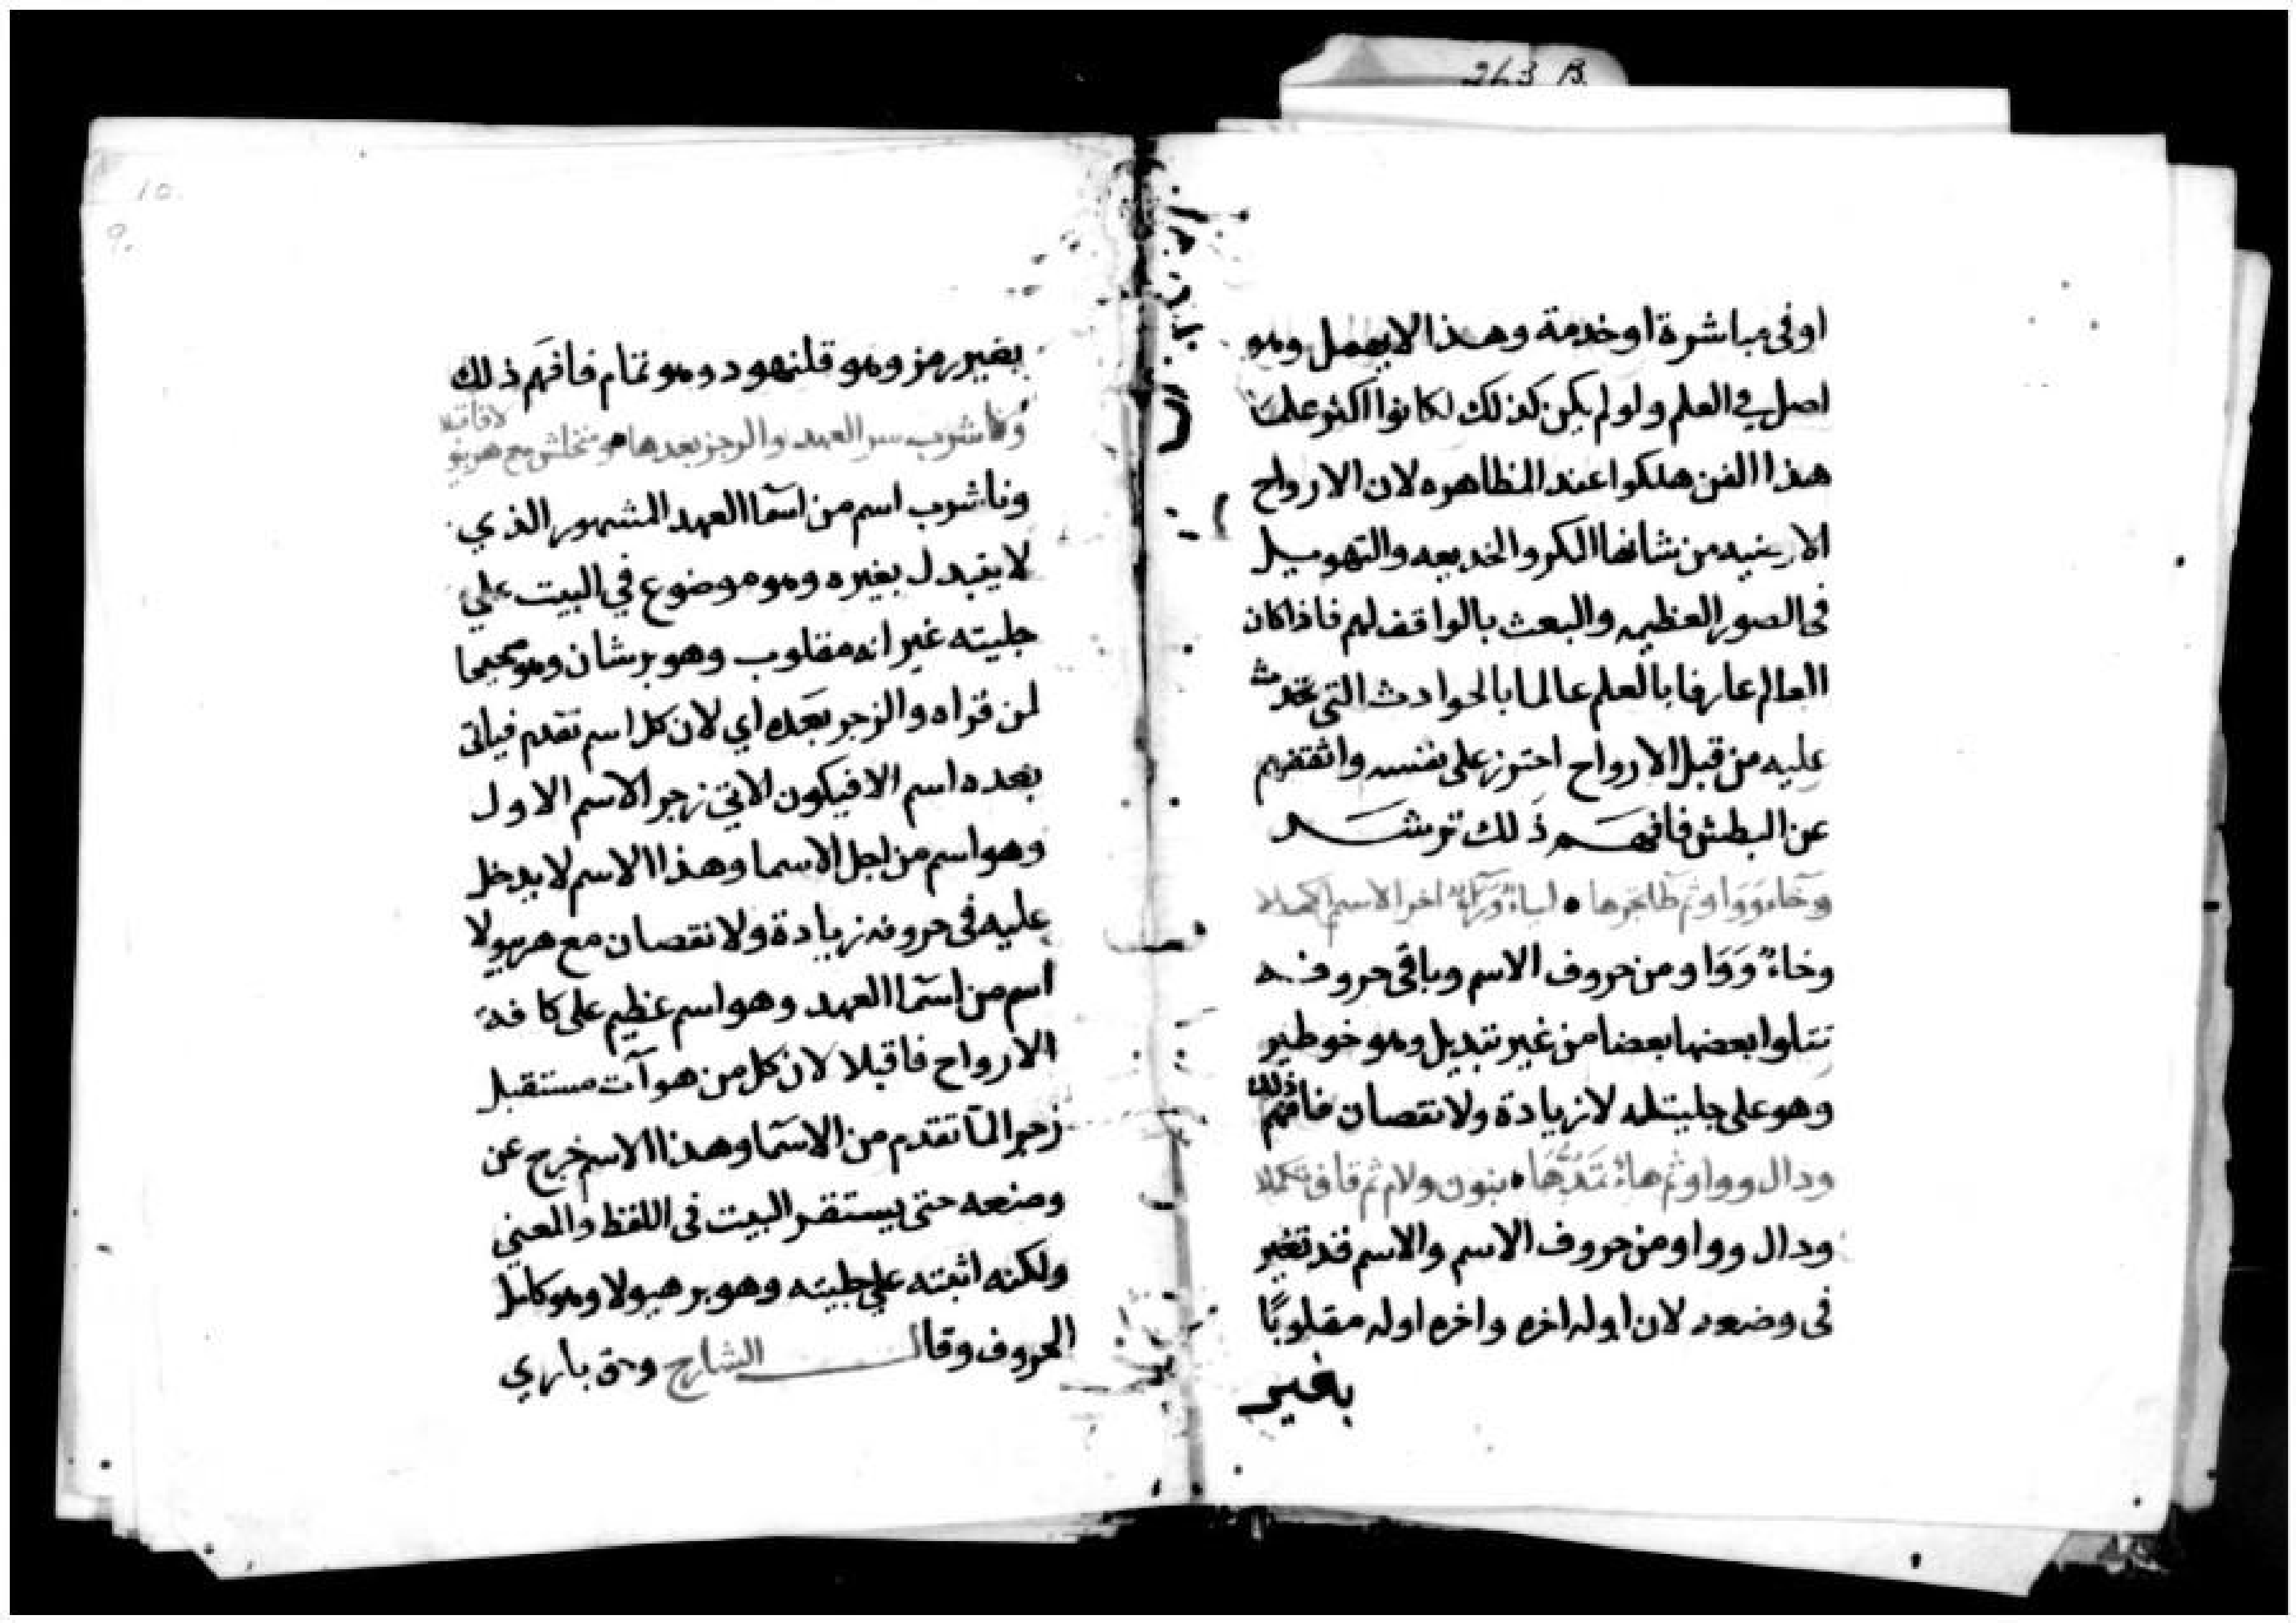 263 B.
اوفى مباشرة اوخدمة وهذا لايهمل وهو
اصل في العلم ولولم يكن كذلك لكانوا اكثر علما
هذا الفن هلكوا عند المظاهره لان الارواح
الارضيه من شانها المكر والخديعه والتهويل
فى الصور العظيمه والبعث بالواقف لهم فاذا كان
العالم عارفا بالعلم عالما بالحوادث التى تحدث
عليه من قبل الارواح احترز على نفسه واثقفهم
عن البطش فافهم ذلك ترشد
وخاء وواو ثم طا بحرها • لياء وراء اخر الاسم اكملا
وخاء وواو من حروف الاسم وباقى حروفه
تتلوا بعضها بعضا من غير تبديل وهو خوطير
وهو على جليته لا زيادة ولا نقصان فافهم ذلك
ودال وواو ثم هاء تمدها • بنون ولام ثم قاف تكملا
ودال وواو من حروف الاسم والاسم قد تغير
فى وضعه لان اوله اخره واخره اوله مقلوبًا
بغير
10.
9.
بغير رمز وهو قلنهود وهو تمام فافهم ذلك
وناشرب سر العهد والزجر بعدها • مع هربو
لا فاقبلا
وناشرب اسم من اسما العهد المشهور الذي
لا يتبدل بغيره وهو موضوع في البيت علي
جليته غير انه مقلوب وهو برشان وهو صحيحا
لمن قراه والزجر بعده اي لان كل اسم تقدم فياتى
بعده اسم الا فيكون الاتي زجر الاسم الاول
وهو اسم من اجل الاسما وهذا الاسم لا يدخل
عليه فى حروفه زيادة ولا نقصان مع هربولا
اسم من اسما العهد وهو اسم عظيم على كافة
الارواح فاقبلا لان كل من هو آت مستقبل
زجر الما تقدم من الاسما وهذا الاسم خرج عن
وضعه حتى يستقر البيت فى اللفظ والمعنى
ولكنه اثبته علي جليته وهو برهيولا وهو كامل
الحروف وقال الشارح وحق باري